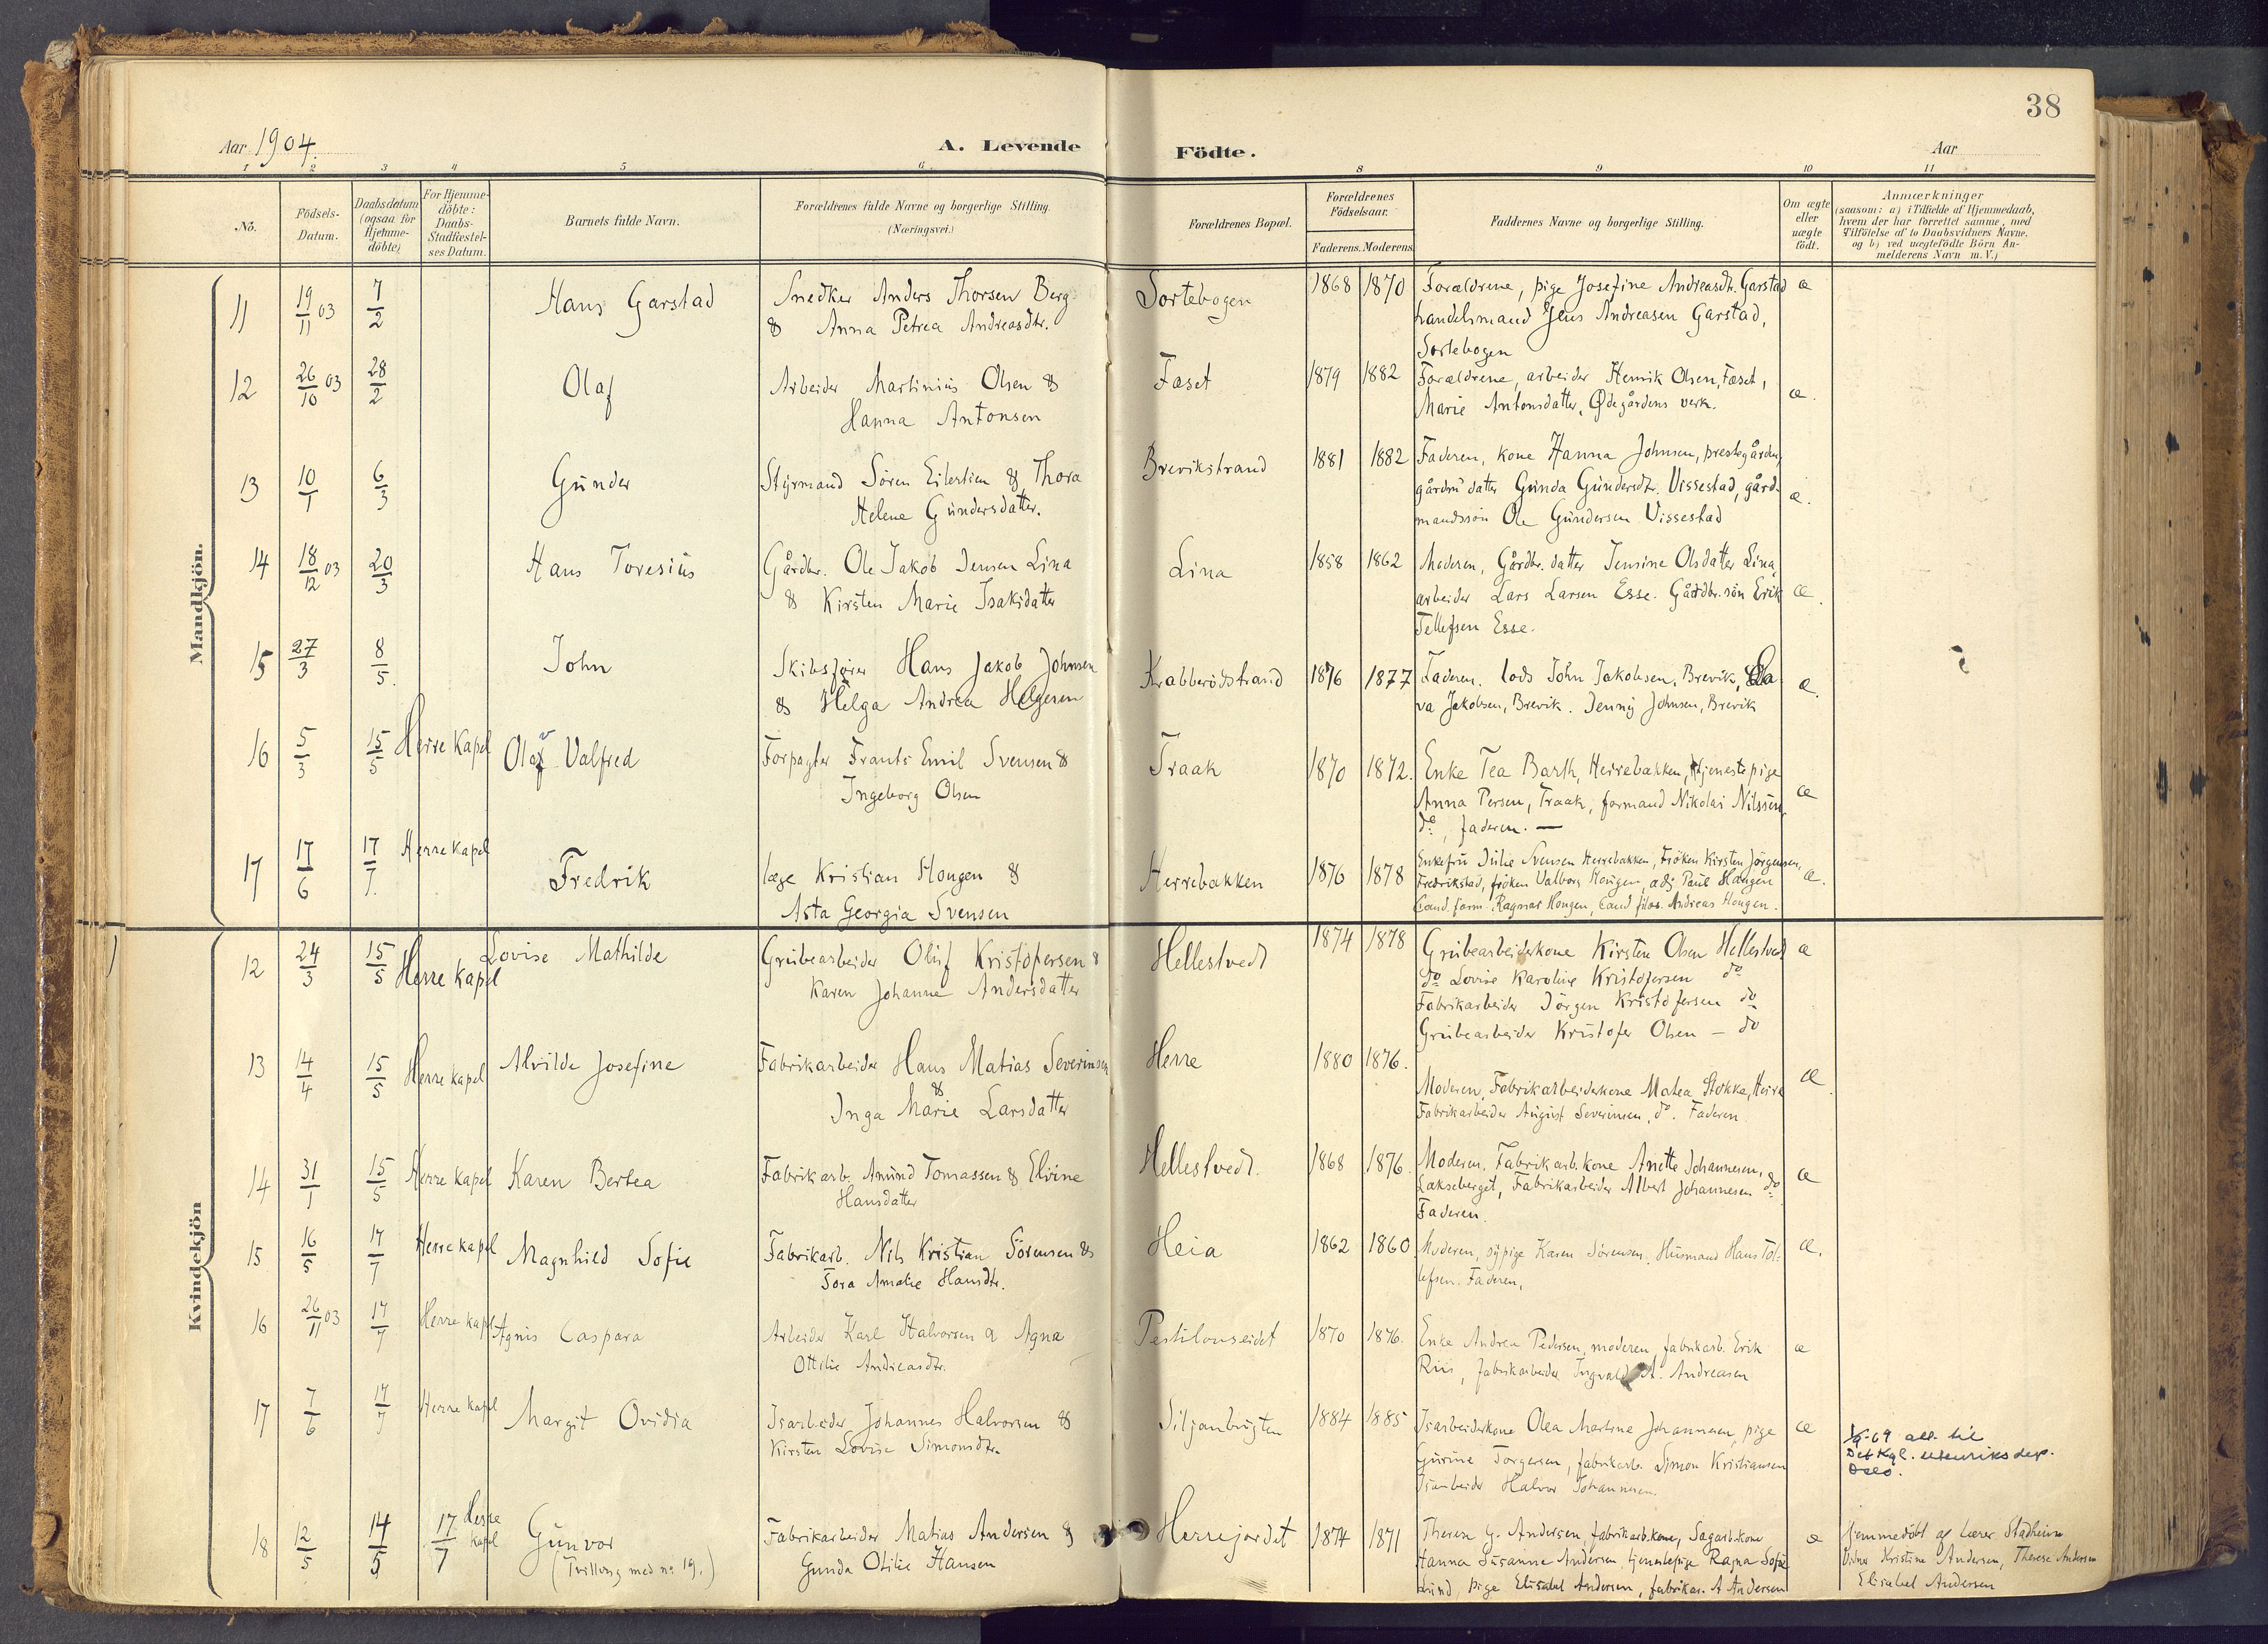 38
Aar 1904.
A. Levende Födte.
Aar
1 2 3 4 5 6 8 9 10 11
No.
Födsels-Datum.
Daabsdatum (ogsaa for Hjemme-döbte)
For Hjemme-döbte: Daabs-Stadfæstel-ses Datum.
Barnets fulde Navn.
Forældrenes fulde Navne og borgerlige Stilling (Næringsvei.)
Forældrenes Bopæl.
Forældrenes Födselsaar.
Faderens. Moderens
Faddernes Navne og borgerlige Stilling.
Om ægte eller uægte födt.
Anmærkninger
(saasom: a) i Tilfælde af Hjemmedaab,
hvem der har forrettet samme, med
Tilföielse af to Daabsvidners Navne,
og b) ved uægtefödte Börn An-
melderens Navn m. V.)
Mandkjön.
11 19/11 03 7/2 Hans Garstad Snedker Anders Thorsen Berg Sortebogen 1868 1870 Forældrene, pige Josefine Andreasdt. Garstad æ
& Anna Petrea Andreasdtr. handelsmand Jens Andreasen Garstad,
Sortebogen
12 26/10 03 28/2 Olaf Arbeider Martinius Olsen & Faset 1879 1882 Forældrene, arbeider Henrik Olsen, Faset, æ.
Hanna Antonsen Marie Antonsdatter, Ødegårdens verk.
13 10/1 6/3 Gunder Styrmand Sören Eilertsen & Thora Brevikstrand 1881 1882 Faderen, kone Hanna Johnsen, prestegården,
Helene Gundersdatter. gårdm. datter Gunda Gundersdtr. Vissestad, gård- æ.
mandssön Ole Gundersen Vissestad
14 18/12 03 20/3 Hans Toresius Gårdbr. Ole Jakob Jensen Lina Lina 1858 1862 Moderen, Gårdbr. datter Jensine Olsdatter Lina,
& Kirsten Marie Isaksdatter arbeider Lars Larsen Esse. Gårdbr. sön Erik æ.
Tellefsen Esse.
15 27/3 8/5. John Skibsförer Hans Jakob Johnsen Krabberödstrand 1876 1877 Faderen. lods John Jakobsen, Brevik,
& Helga Andrea Helgesen va Jakobsen, Brevik. Jenny Johnsen, Brevik æ.
16 5/3 15/5 Herre Kapel Olaf Valfred Forpagter Frants Emil Svensen & Traak 1870 1872. Enke Tea Barth, Herrebakken, tjenestepige
v Ingeborg Olsen Anna Persen, Traak, formand Nikolai Nilssen, æ
do, faderen. —
17 17/6 17/7. Herre Kapel Fredrik læge Kristian Hougen & Herrebakken 1876 1878 Enkefru Julie Svensen Herrebakken, Fröken Kirsten Jörgensen, æ.
Asta Georgia Svensen Fredrikstad, fröken Valborg Hougen, adj. Paul Hougen
Cand. farm. Ragnar Hougen, Cand. filos. Andreas Hougen.
Kvindekjön
12 24/3 15/5 Herre Kapel Lovise Mathilde Grubearbeider Oluf Kristofersen & Hellestvedt 1874 1878 Grubearbeiderkone Kirsten Olsen Hellestvedt æ
Karen Johanne Andersdatter do Lovise Karoline Kristofersen do
Fabrikarbeider Jörgen Kristofersen do
Grubearbeider Kristofer Olsen — do
13 14/4 15/5 Herre kapel Alvilde Josefine Fabrikarbeider Hans Matias Severinsen Herre 1880 1876.
& Inga Marie Larsdatter Moderen, Fabrikarbeiderkone Matea Stokka, Herre æ.
Fabrikarbeider August Severinsen, do. Faderen
14 31/1 15/5 Herre kapel Karen Bertea Fabrikarb. Amund Tomassen & Elvine Hellestvedt. 1868 1876. Moderen, Fabrikarb. kone Anette Johannesen, æ
Hansdatter Lakseberget, Fabrikarbeider Albert Johannesen do
Faderen.
15 16/5 17/7 Herre kapel Magnhild Sofie Fabrikarb. Nils Kristian Sörensen & Heia 1862 1860 Moderen, sypige Karen Sörensen. Husmand Hans Tol- æ.
Tora Amalie Hansdtr. lefsen. Faderen.
16 26/11 03 17/7 Herre kapel Agnis Caspara Arbeider Karl Halvorsen & Agna Pestilonseidet 1870 1876. Enke Andrea Pedersen, moderen, fabrikarb. Erik æ
Ottilie Andreasdtr. Riis, fabrikarbeider Ingvald A. Andreasen
17 7/6 17/7 Herre kapel Margit Ovidia Isarbeider Johannes Halvorsen & Siljanbugten 1884 1885 Isarbeiderkone Olea Martine Johannesen, pige æ
Kirsten Lovise Simonsdtr. Gurine Torgersen, fabrikarb. Simon Kristiansen
Isarbeider Halvor Johannesen.
-69 att. til
Det kgl. utenriksdep.
Oslo.
18 12/5 14/5 17/7 Herre kapel Gunvor Fabrikarbeider Matias Andersen & Herrejordet 1874 1871 Therese G. Andersen fabrikarb.kone, Sagarb.kone æ Hjemmedöbt af Lærer Stadheim
(Tvilling med no 19.) Gunda Otilie Hansen Hanna Susanne Andersen, tjenestepige Ragna Sofie Vidner Kristine Andersen, Therese Andersen
Lund, pige Elisabet Andersen, fabrikar. A Andersen Elisabet Andersen